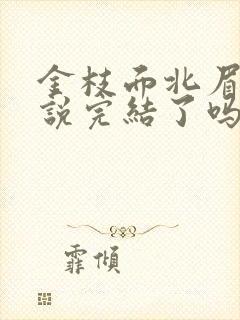 金枝而北眉
說完結了嗎
霏傾